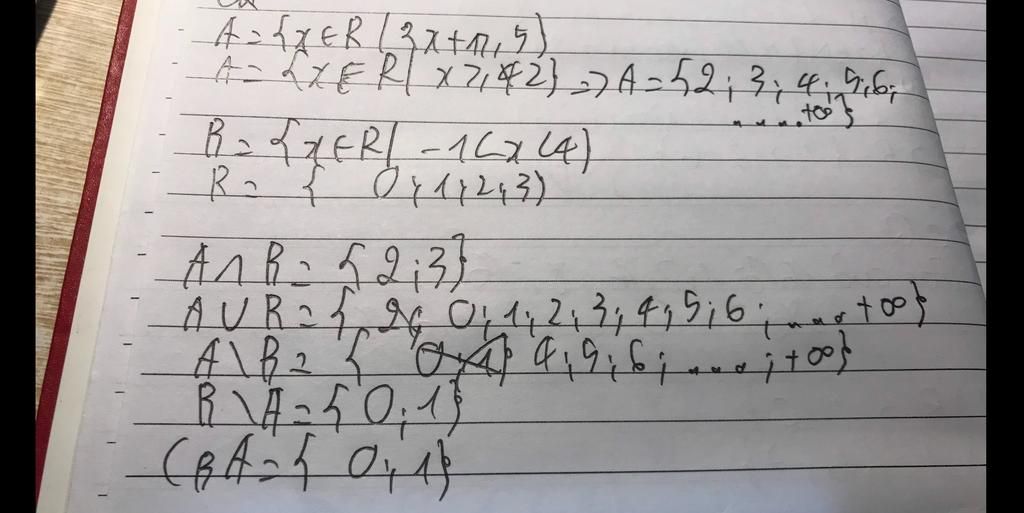 A = {x ∈ R | 3x + 1 ⩾ 5}
A = {x ∈ R | x ⩾ 2} => A = {2 ; 3 ; 4 ; 5 ; 6 ;
.... +∞}
B = {x ∈ R | - 1 < x < 4)
B = { 0 ; 1 ; 2 ; 3)
A ∩ B = {2 ; 3}
A ∪ B = { 0 ; 1 ; 2 ; 3 ; 4 ; 5 ; 6 ; .... +∞}
A \ B = { 4 ; 5 ; 6 ; .... ; +∞}
B \ A = {0 ; 1}
C_B A = { 0 ; 1}